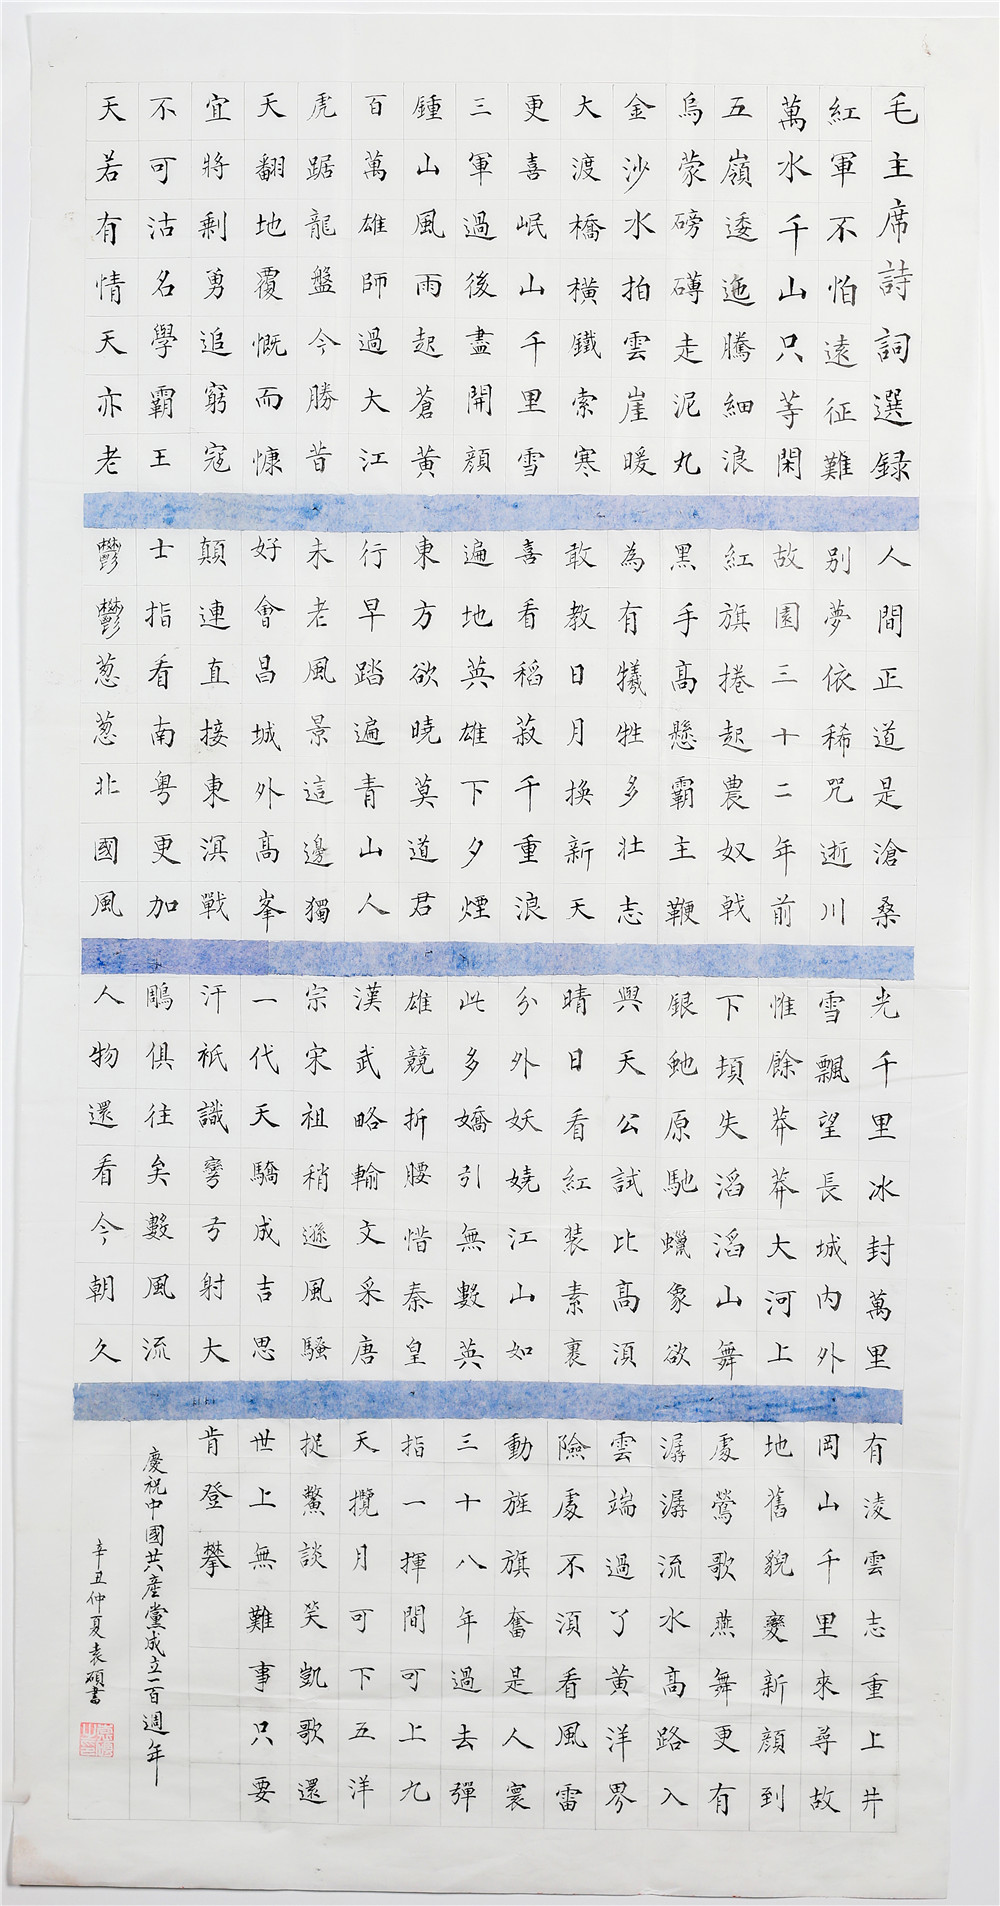 毛主席詩詞選録
紅軍不怕遠征難
萬水千山只等閑
五嶺逶迤騰細浪
烏蒙磅礴走泥丸
金沙水拍雲崖暖
大渡橋橫鐵索寒
更喜岷山千里雪
三軍過後盡開顔
鍾山風雨起蒼黃
百萬雄師過大江
虎踞龍盤今勝昔
天翻地覆慨而慷
宜將剩勇追窮寇
不可沽名學霸王
天若有情天亦老
人間正道是滄桑
別夢依稀咒逝川
故園三十二年前
紅旗捲起農奴戟
黑手高懸霸主鞭
為有犧牲多壯志
敢教日月換新天
喜看稻菽千重浪
遍地英雄下夕煙
東方欲曉莫道君
行早踏遍青山人
未老風景這邊獨
好會昌城外高峯
顛連直接東溟戰
士指看南粵更加
鬱鬱葱葱北國風
光千里冰封萬里
雪飄望長城內外
惟餘莽莽大河上
下頓失滔滔山舞
銀虵原馳蠟象欲
與天公試比高須
晴日看紅裝素裹
分外妖嬈江山如
此多嬌引無數英
雄競折腰惜秦皇
漢武略輸文采唐
宗宋祖稍遜風騷
一代天驕成吉思
汗祇識彎弓射大
鵰俱往矣數風流
人物還看今朝久
有淩雲志重上井
岡山千里來尋故
地舊貌變新顔到
處鶯歌燕舞更有
潺潺流水高路入
雲端過了黄洋界
險處不須看風雷
動旌旗奮是人寰
三十八年過去彈
指一揮間可上九
天攬月可下五洋
捉鱉談笑凱歌還
世上無難事只要
肯登攀
慶祝中國共産黨成立一百週年
辛丑仲夏袁碩書